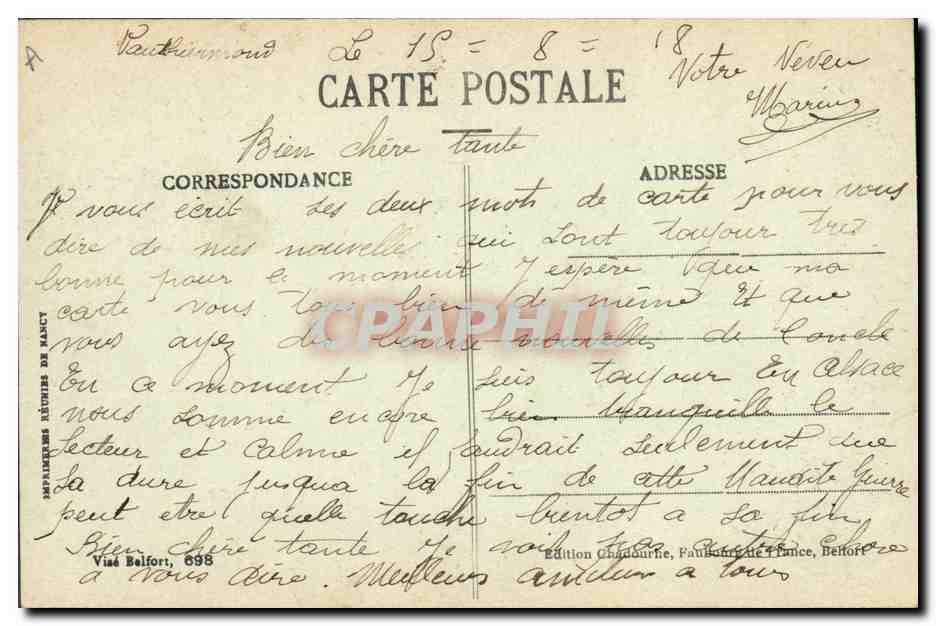 A
Vauthiermont Le 15 = 8 = 18
Votre Neveu
Marius
CARTE POSTALE
Bien chère tante
CORRESPONDANCE
ADRESSE
Je vous écrit ses deux mots de carte pour vous
dire de mes nouvelles qui sont toujour tres
bonne pour le moment J'espère que ma
carte vous bien de même Et que
vous ayez des bonne nouvelles de l'oncle
En ce moment Je suis toujour En Alsace
nous somme encore bien tranquille le
secteur et calme il faudrait seulement que
sa dure jusqua la fin de cette Maudite Guerre
peut etre quelle touche bientot a sa fin
Bien chère tante Je voit pas autre chose
a vous dire. Meilleurs amities a tous
IMPRIMERIES RÉUNIES DE NANCY
Visé Belfort, 698
Edition Chadourne, Faubourg de France, Belfort
CPAPHIL